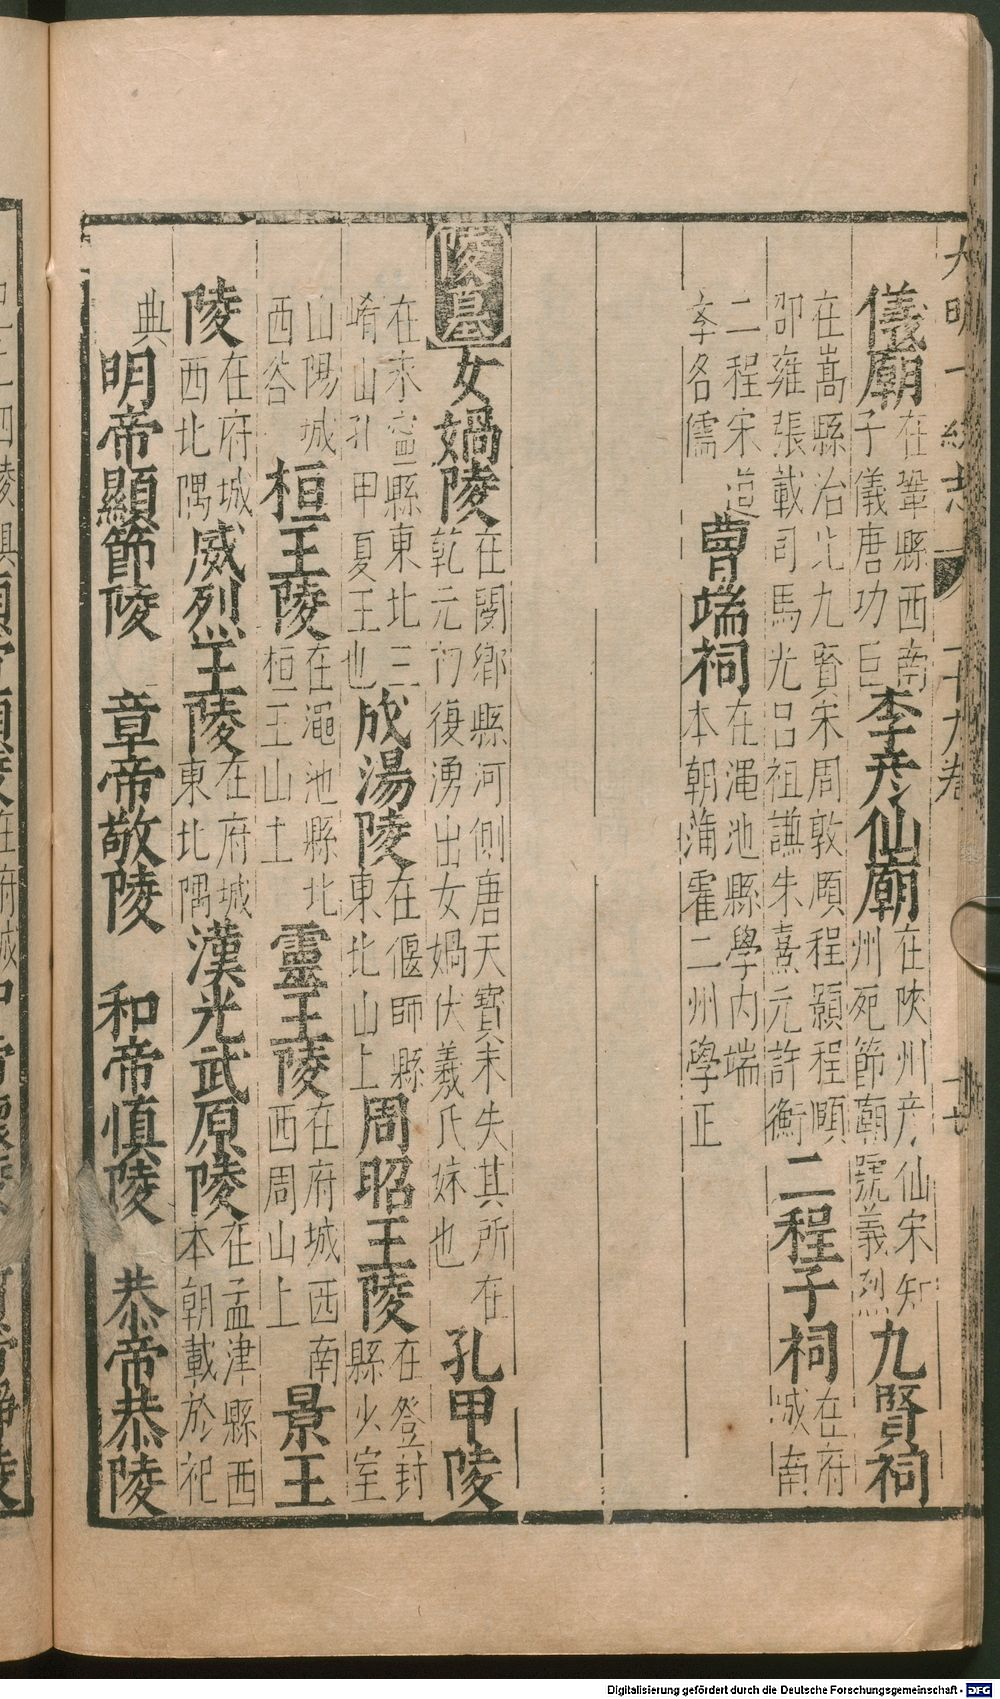 大明一統志 二十九卷 十七
儀廟在鞏縣西南子儀唐功臣李彥仙廟在陝州彥仙宋知州死節廟號義烈九賢祠
在嵩縣治北九賢宋周敦頤程顥程頤邵雍張載司馬光呂祖謙朱熹元許衡二程子祠在府城南
二程宋道學名儒曹端祠在澠池縣學內端本朝蒲霍二州學正
陵墓女媧陵在閿鄉縣河側唐天寶末失其所在乾元初復湧出女媧伏羲氏妹也孔甲陵
在永寧縣東北三崤山孔甲夏王也成湯陵在偃師縣東北山上周昭王陵在登封縣少室
山陽城西谷桓王陵在澠池縣北桓王山土靈王陵在府城西南西周山上景王
陵在府城西北隅威烈王陵在府城東北隅漢光武原陵在孟津縣西本朝載於祀
典明帝顯節陵 章帝敬陵 和帝慎陵 恭帝恭陵
Digitalisierung gefördert durch die Deutsche Forschungsgemeinschaft - DFG